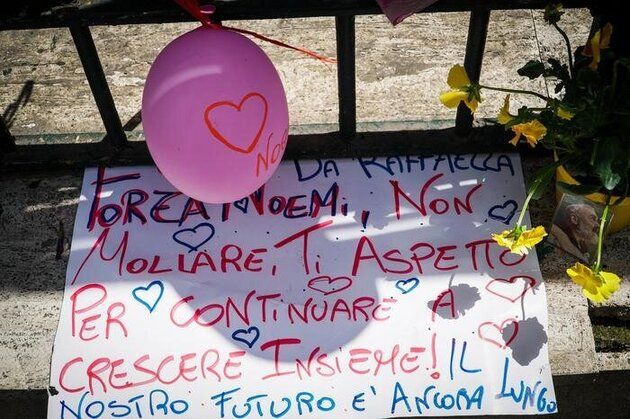 DA RAFFAELLA
FORZA NOEMI, NON
MOLLARE, TI ASPETTO
PER CONTINUARE A
CRESCERE INSIEME! IL
NOSTRO FUTURO E' ANCORA LUNGO